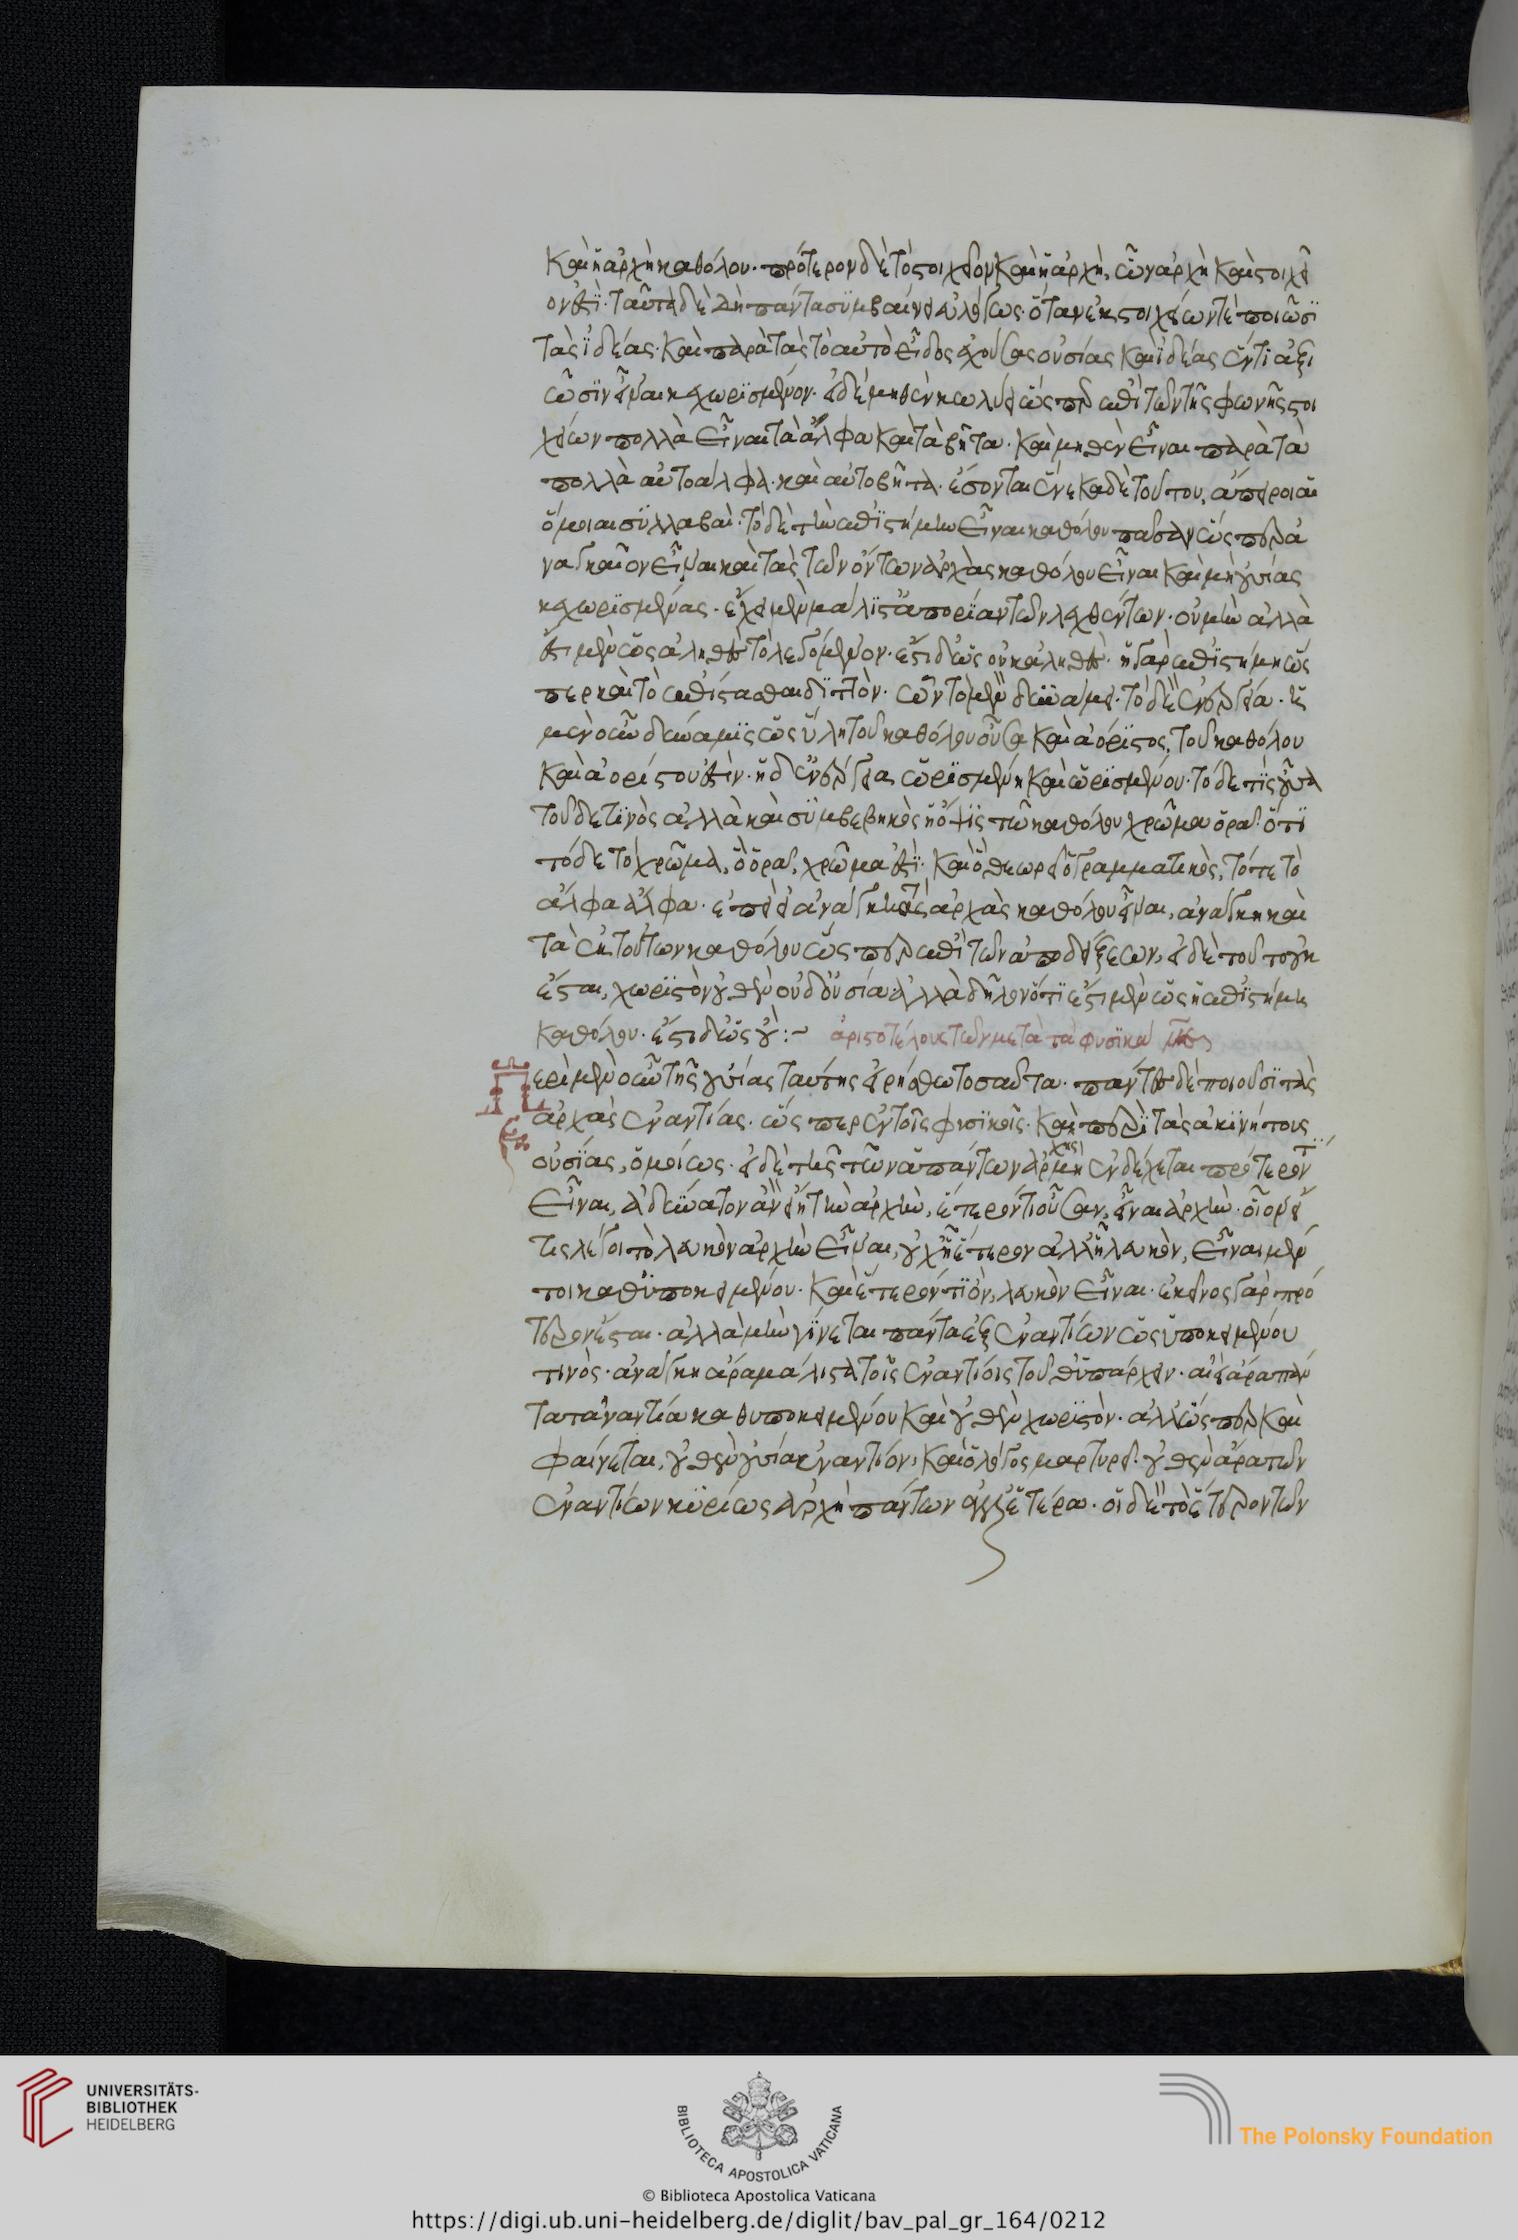 καὶ ἡ ἀρχὴ καθόλου· πρότερον δὲ τὸ στοιχεῖον καὶ ἡ ἀρχὴ, ὧν ἀρχὴ καὶ στοιχεῖ
ον ἐστϊ· ταῦτα δὲ δὴ πάντα συμβαίνει εὐλόγως· ὅταν ἐκ στοιχείων τὲ ποιῶσϊ
τὰς ϊδέας· καὶ παρὰ τὰς τὸ αὐτὸ εἶδος ἐχούσας οὐσίας καὶ ϊδέας ἕν τϊ ἀξι
ῶσϊν εἶναι κεχωρϊσμένον· εἰ δὲ μηθὲν κωλύει ὥσπερ ἐπὶ τῶν τῆς φωνῆς στοι
χείων πολλὰ εἶναι τὰ ἄλφα καὶ τὰ βῆτα· καὶ μηθὲν εἶναι παρὰ τὰ
πολλὰ αὐτοάλφα· καὶ αὐτοβῆτα· ἔσονται ἕνεκα δὲ τούτου, ἄπειροι αἱ
ὅμοιαι συλλαβαὶ· τὸ δὲ τὴν ἐπϊστήμην εἶναι καθόλου πᾶσαν ὥσπερ ἀ
ναγκαῖον εἶναι καὶ τὰς τῶν ὄντων ἀρχὰς καθόλου εἶναι καὶ μὴ οὐσίας
κεχωρϊσμένας· ἔχει μὲν μάλϊστα ἀπορίαν τῶν λεχθέντων· οὐ μὴν ἀλλὰ
ἔστι μὲν ὡς ἀληθὲς τὸ λεγόμενον· ἔστι δ' ὡς οὐκ ἀληθὲς· ἡ γὰρ ἐπϊστήμη ὥσ
περ καὶ τὸ ἐπίστασθαι δϊττὸν· ὧν τὸ μὲν δυνάμει· τὸ δὲ ἐνεργείᾳ· ἡ
μὲν οὖν δύναμϊς ὡς ὕλη τοῦ καθόλου οὖσα καὶ ἀόρϊστος, τοῦ καθόλου
καὶ ἀορίστου ἐστὶν· ἡ δ' ἐνέργεια ὡρϊσμένη καὶ ὡρϊσμένου· τόδε τϊ οὖσα
τοῦδε τϊνὸς ἀλλὰ κατὰ συμβεβηκὸς ἡ ὄψϊς τὸ καθόλου χρῶμα ὁρᾶ· ὅτϊ
τόδε τὸ χρῶμα, ὃ ὁρᾶ, χρῶμα ἐστϊ· καὶ ὃ θεωρεῖ ὁ γραμματικὸς, τόδε τὸ
ἄλφα ἄλφα· ἐπεὶ εἰ ἀνάγκη τὰς ἀρχὰς καθόλου εἶναι, ἀνάγκη καὶ
τὰ ἐκ τούτων καθόλου ὥσπερ ἐπὶ τῶν ἀποδείξεων, εἰ δὲ τοῦτο οὐκ
ἔσται, χωρϊστὸν οὐθὲν οὐδ' οὐσία· ἀλλὰ δῆλον ὅτϊ ἔστι μὲν ὡς ἡ ἐπϊστήμη
καθόλου· ἔστι δ' ὡς οὔ :~ ἀριστοτέλους τῶν μετὰ τὰ φυσϊκὰ
Περὶ μὲν οὖν τῆς οὐσίας ταύτης εἰρήσθω τοσαῦτα· πάντες δὲ ποιοῦσϊ τὰς
ἀρχὰς ἐναντίας· ὥσπερ ἐν τοῖς φυσϊκοῖς· καὶ περὶ τὰς ἀκινήτους
οὐσίας, ὁμοίως· εἰ δὲ τῆς τῶν ἁπάντων ἀρχῆς μὴ ἐνδέχεται πρότερόν τϊ
εἶναι, ἀδύνατον ἂν εἴη τὴν ἀρχὴν, ἕτερόν τι οὖσαν, εἶναι ἀρχὴν· οἷον εἴ
τις λέγοι τὸ λευκὸν ἀρχὴν εἶναι, οὐχ ᾗ ἕτερον ἀλλ' ᾗ λευκὸν, εἶναι μέν
τοι καθ' ὑποκειμένου· καὶ ἕτερόν τϊ ὂν, λευκὸν εἶναι· ἐκεῖνο γὰρ πρό
τερον ἔσται· ἀλλὰ μὴν γίνεται πάντα ἐξ ἐναντίων ὡς ὑποκειμένου
τινὸς· ἀνάγκη ἄρα μάλιστα τοῖς ἐναντίοις τοῦθ' ὑπάρχειν· ἀεὶ ἄρα πάν
τα τἀναντία καθ' ὑποκειμένου καὶ οὐθὲν χωρϊστὸν· ἀλλ' ὥσπερ καὶ
φαίνεται, οὐθὲν οὐσίᾳ ἐναντίον, καὶ ὁ λόγος μαρτυρεῖ· οὐθὲν ἄρα τῶν
ἐναντίων κυρίως ἀρχὴ πάντων ἀλλ' ἑτέρα· οἱ δὲ τὸ ἕτερον τῶν
UNIVERSITÄTS-
BIBLIOTHEK
HEIDELBERG
BIBLIOTECA APOSTOLICA VATICANA
The Polonsky Foundation
© Biblioteca Apostolica Vaticana
https://digi.ub.uni-heidelberg.de/diglit/bav_pal_gr_164/0212